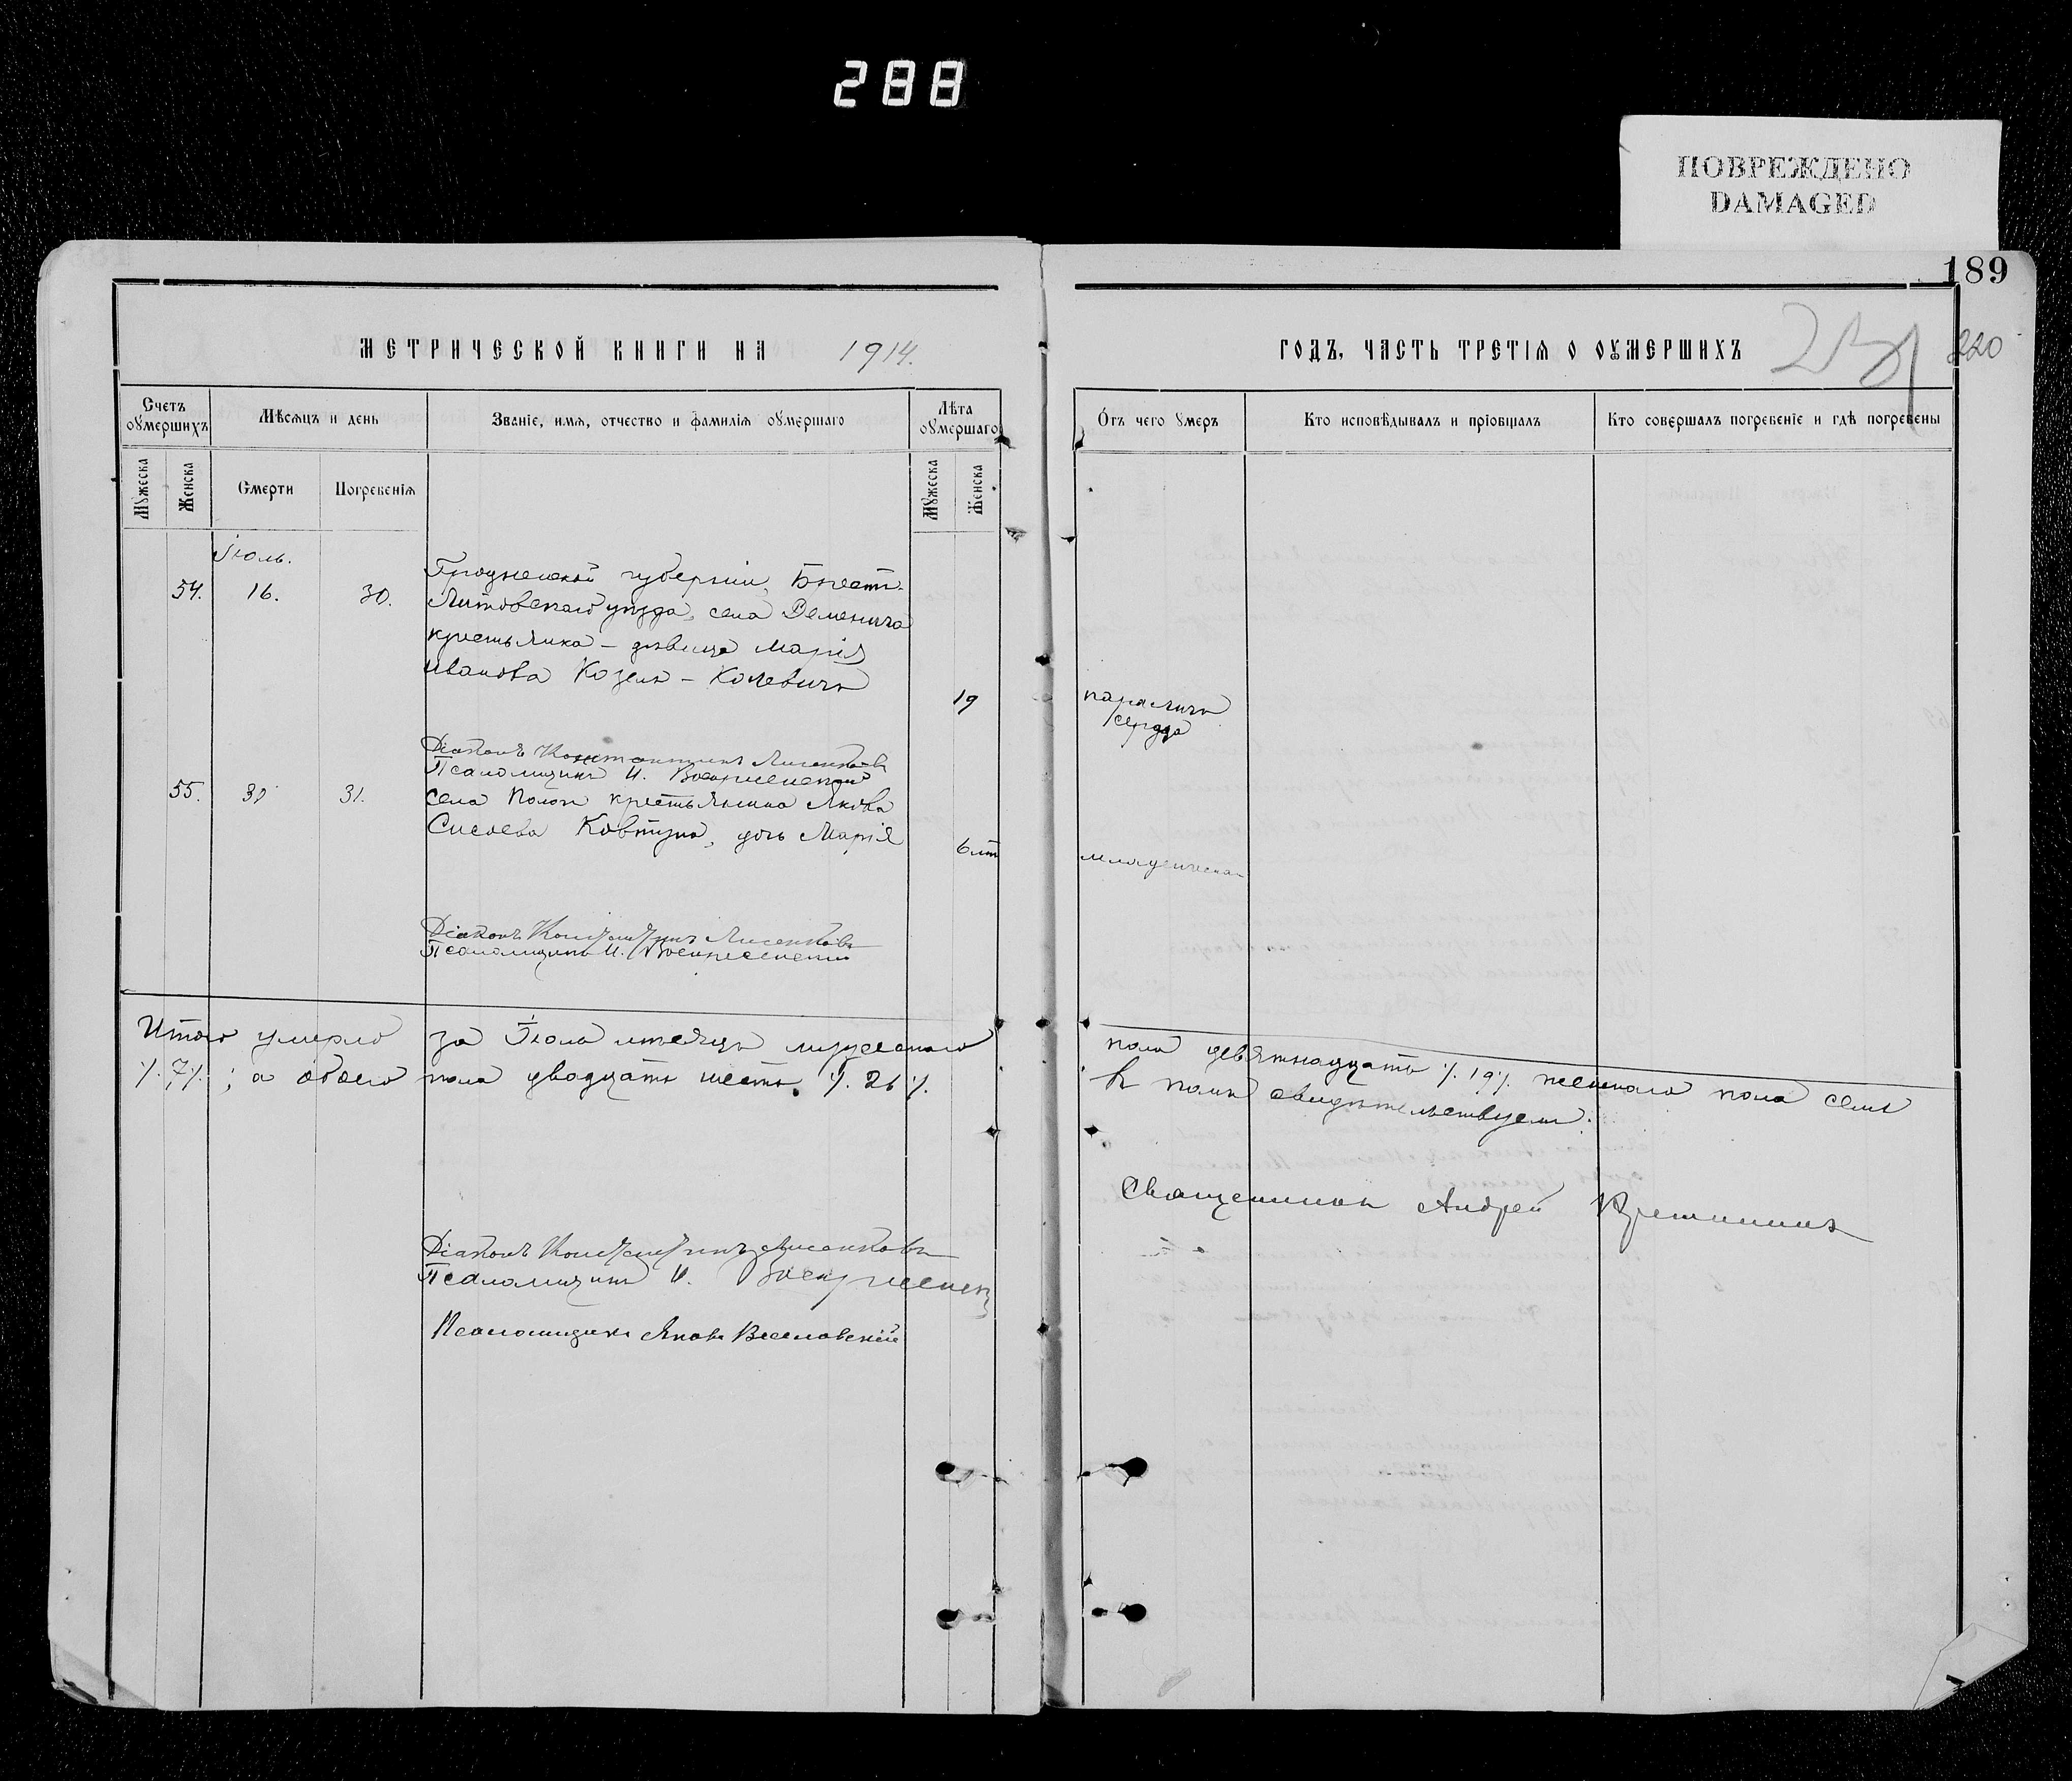 288
ПОВРЕЖДЕНО
DAMAGED
189
220
МЕТРИЧЕСКОЙ КНИГИ НА 1914.
ГОДЪ, ЧАСТЬ ТРЕТІЯ О ОУМЕРШИХЪ
Счетъ оумершихъ
Мѣсяцъ и день
Званіе, имя, отчество и фамилія оумершаго
Лѣта оумершаго
Отъ чего умеръ
Кто исповѣдывалъ и пріобщалъ
Кто совершалъ погребеніе и гдѣ погребены
Мужеска
Женска
Смерти
Погребенія
Мужеска
Женска
Іюль.
54. 16. 30. Гродненской губерніи, Брестъ-
Литовскаго уѣзда, села
крестьянка – дѣвица Марія
Иванова Козелъ –
19 параличъ
сердца
Діаконъ Константинъ Лисенковъ
Псаломщикъ И. Воскресенскій
55. 30 31. села Пологъ крестьянина Якова
Сисоева Ковтуна, дочь Марія
6 лѣт младенческая
Діаконъ Константинъ Лисенковъ
Псаломщикъ И. Воскресенскій
Итого умерло за Іюль мѣсяцъ мужескаго пола девятнадцать /.19/. женскаго пола семь
/.7/.; а обоего пола двадцать шесть /.26/. въ томъ свидѣтельствуемъ:
Священникъ Андрей
Діаконъ Константинъ Лисенковъ
Псаломщикъ И. Воскресенскій
Псаломщикъ Яковъ Веселовскій